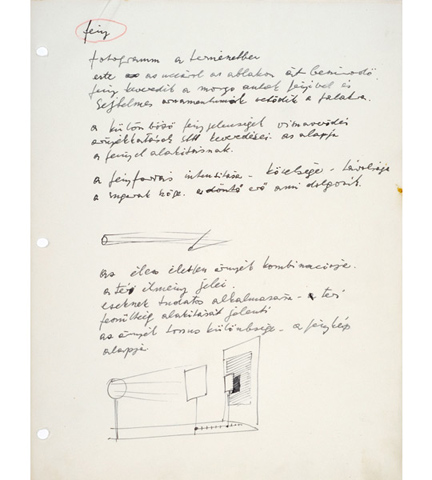 fény
fotogramm a természetben
este az utcáról az ablakon át beáradó
fény keveredik a mozgó autók fényével és
sejtelmes ornamentumok vetődik a falakra.
a különböző fényjelenségek
árnyékhatások keveredései az alapja
a fénnyel alakításnak.
a fényforrás intenzitása – közelsége – távolsága
a sugarak döntő erő ami dolgozik.
az éles életlen árnyék kombinációja.
a tér élmény jelei.
ezeknek tudatos alkalmazása – tér
feszültség alakítását jelenti
az árnyék tónus különbsége – a fénykép
alapja